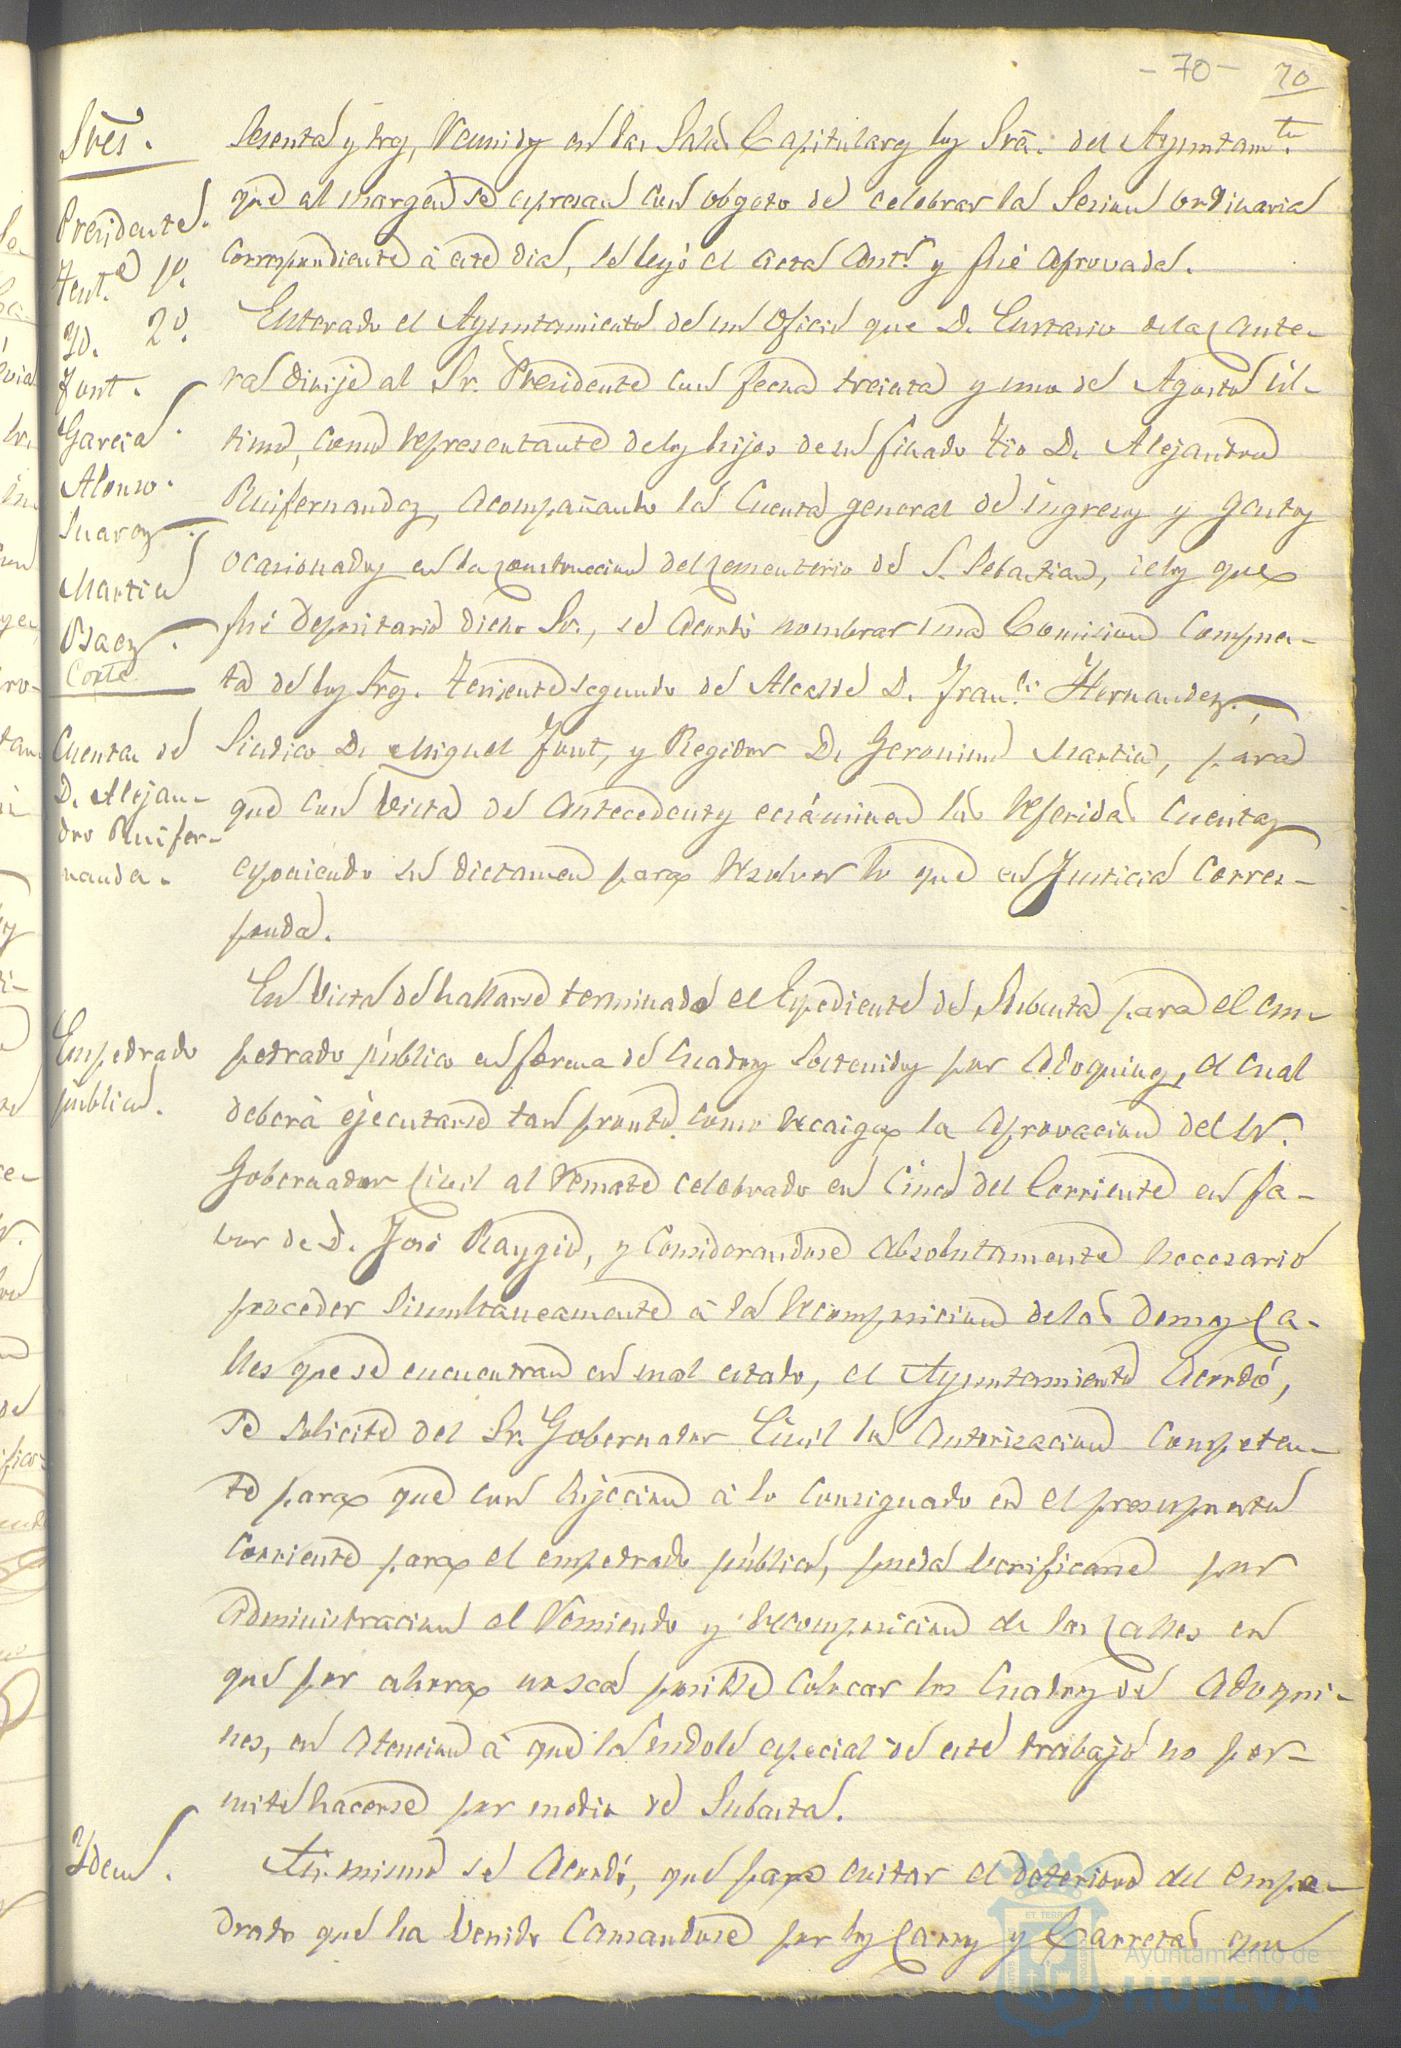 - 70 -
70
Sres.
Presidente.
Tente. 1º.
Yd. 2º.
Font.
Garcia.
Alonso.
Suarez.
Martin
Saez.
Corte
Sesenta y tres, Reunidos en las Salas Capitulares los Sres. del Ayuntamto.
que al margen se espresan con obgeto de celebrar la Sesion ordinaria
correspondiente á este dia, se leyó el acta antr. y fué aprovada.
Cuentas de
D. Alejan-
dro Ruifer-
nandez.
Enterado el Ayuntamiento de un oficio que D. Eustasio de la Cante-
ra dirije al Sr. Presidente con fecha treinta y uno de Agosto úl-
timo, como representante de los hijos de su finado tio D. Alejandro
Ruifernandez, acompañando la Cuenta general de ingresos y gastos
ocasionados en la construccion del Cementerio de S. Sebastian, de los que
fué Depositario dicho Sr., se acordó nombrar una Comision compues-
ta de los Sres. Teniente segundo de Alcalde D. Franco. Hernandez,
Sindico D. Miguel Font, y Regidor D. Geronimo Martin, para
que con vista de antecedentes ecsáminen las referidas Cuentas
esponiendo su dictamen para resolver lo que en Justicia corres-
ponda.
Empedrado
público.
En vista de hallarse terminado el Espediente de Subasta para el em-
pedrado público en forma de Cuadros sostenidos por adoquines, el cual
deberá ejecutarse tan pronto como recaiga la aprovacion del Sr.
Gobernador Civil al remate celebrado en Cinco del Corriente en fa-
vor de D. José Raygio, y considerandose absolutamente necesario
proceder simultaneamente á la recomposicion de las demas Ca-
lles que se encuentran en mal estado, el Ayuntamiento acordó,
se solicite del Sr. Gobernador Civil la autorizacion competen-
te para que con sujecion á lo consignado en el presupuesto
Corriente para el empedrado público, pueda verificarse por
administracion el remiendo y recomposicion de las Calles en
que por ahora no sea posible colocar los Cuadros de adoqui-
nes, en atencion á que la indole especial de este trabajo no per-
mite hacerse por medio de Subasta.
Ydem.
Asi mismo se acordó, que para evitar el deterioro del empe-
drado que ha venido causandose por los Carros y Carretas que
EN TERRA
Ayuntamiento de
HUELVA